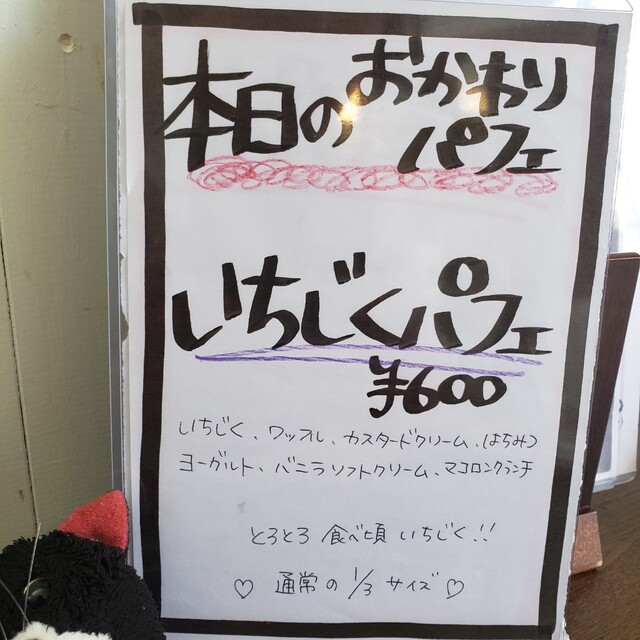 本日のおかわり
パフェ
いちじくパフェ
¥600
いちじく、ワッフル、カスタードクリーム、はちみつ
ヨーグルト、バニラソフトクリーム、マコロンクランチ
とろとろ 食べ頃 いちじく!!
♡ 通常の 1/3 サイズ ♡